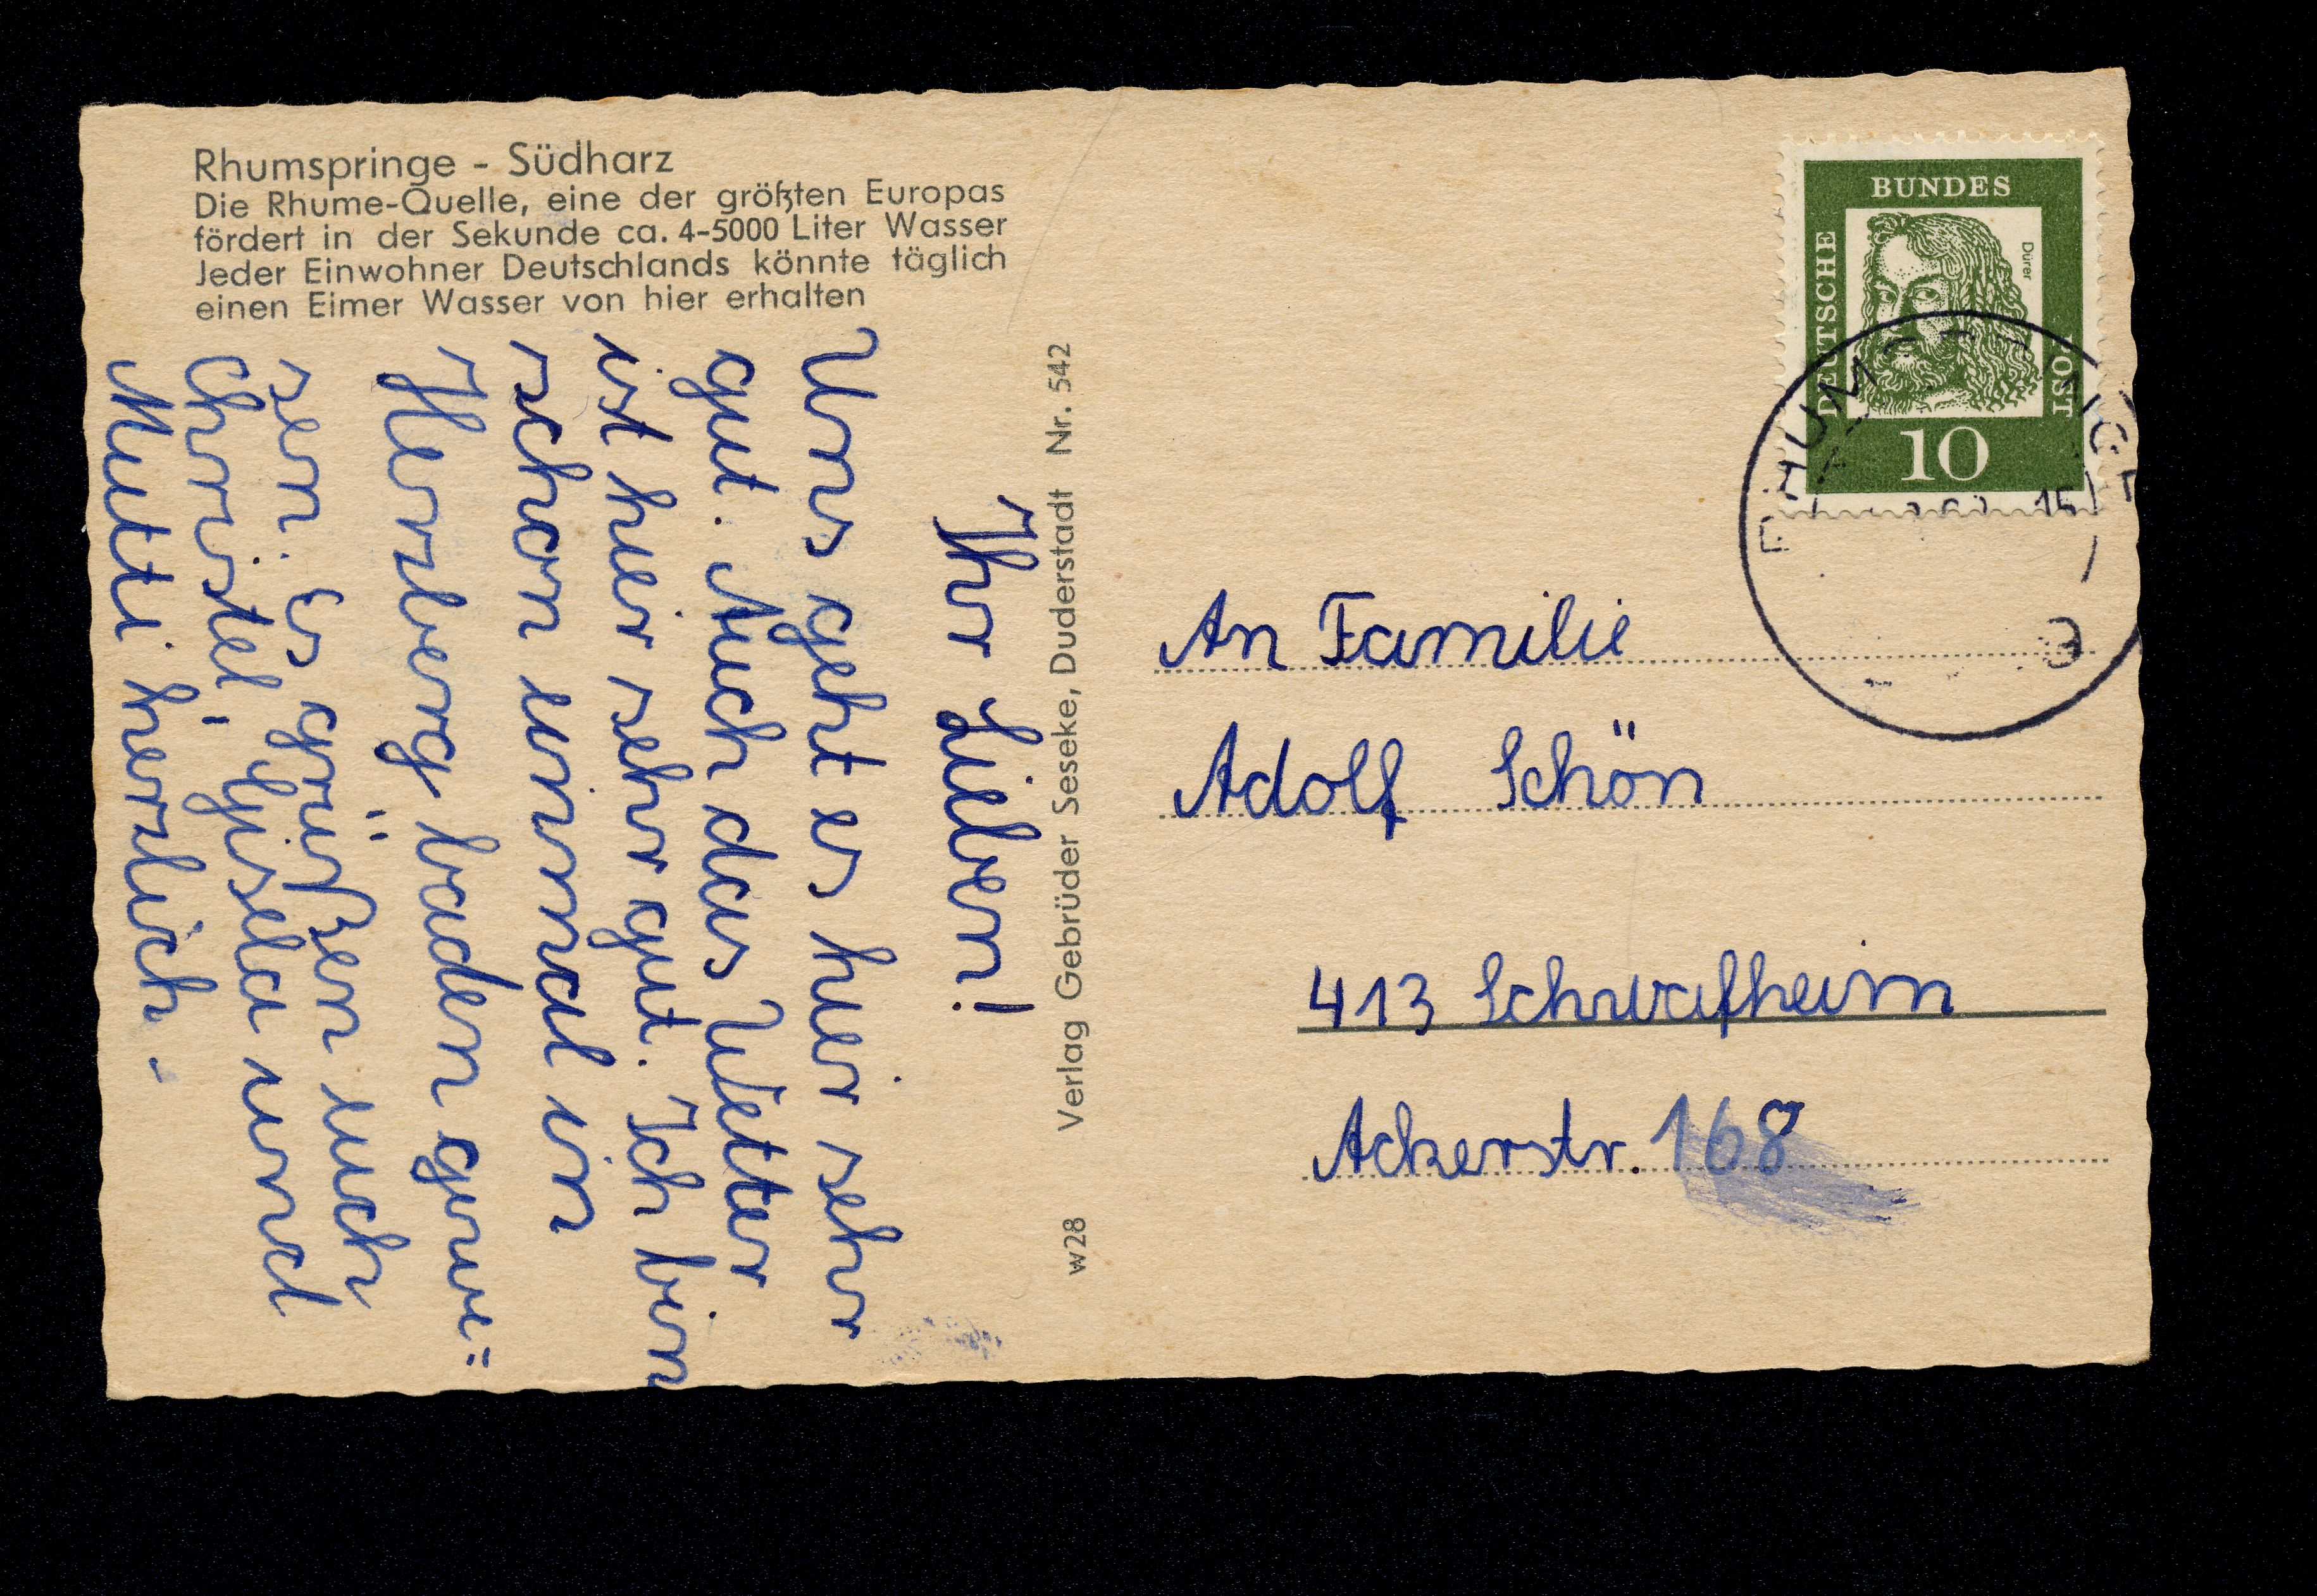 Rhumspringe - Südharz
Die Rhume-Quelle, eine der größten Europas
fördert in der Sekunde ca. 4-5000 Liter Wasser
Jeder Einwohner Deutschlands könnte täglich
einen Eimer Wasser von hier erhalten
Ihr Lieben!
Uns geht es hier sehr
gut. Auch das Wetter
ist hier sehr gut. Ich bin
schon einmal in
Herzberg baden gewe=
sen. Es grüßen euch
Christel, Gisela und
Mutti herzlich.-
w28 Verlag Gebrüder Seseke, Duderstadt Nr. 542
DEUTSCHE
BUNDES
POST
Dürer
10
An Familie
Adolf Schön
413 Schwafheim
Ackerstr. 168